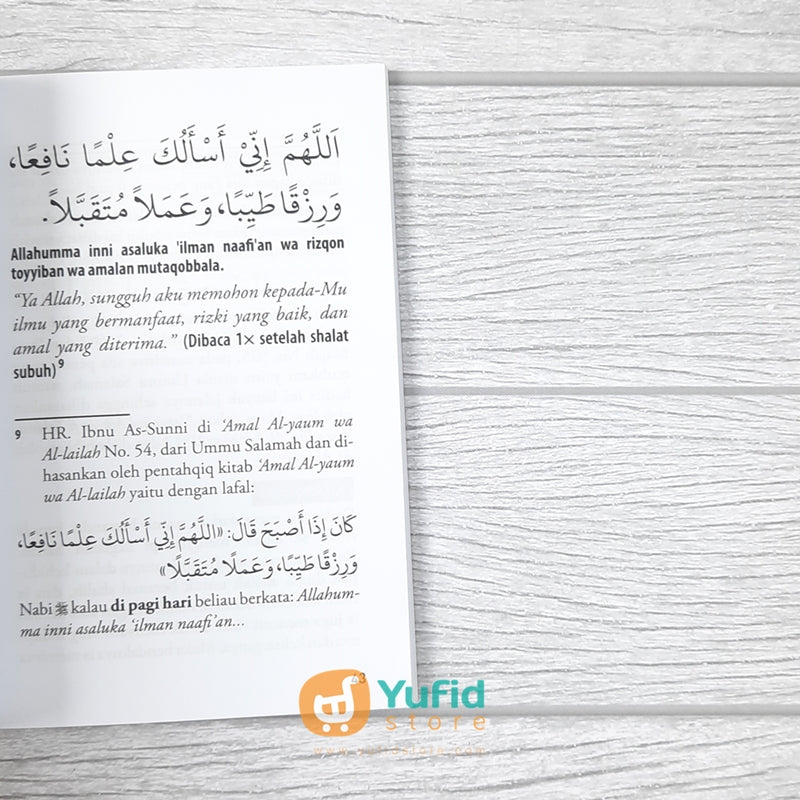 اَللَّهُمَّ إِنِّيْ أَسْأَلُكَ عِلْمًا نَافِعًا،
وَرِزْقًا طَيِّبًا، وَعَمَلاً مُتَقَبَّلاً.
Allahumma inni asaluka 'ilman naafi'an wa rizqon
toyyiban wa amalan mutaqobbala.
“Ya Allah, sungguh aku memohon kepada-Mu
ilmu yang bermanfaat, rizki yang baik, dan
amal yang diterima.” (Dibaca 1× setelah shalat
subuh)9
9 HR. Ibnu As-Sunni di ‘Amal Al-yaum wa
Al-lailah No. 54, dari Ummu Salamah dan di-
hasankan oleh pentahqiq kitab ‘Amal Al-yaum
wa Al-lailah yaitu dengan lafal:
كَانَ إِذَا أَصْبَحَ قَالَ: «اللَّهُمَّ إِنِّي أَسْأَلُكَ عِلْمًا نَافِعًا،
وَرِزْقًا طَيِّبًا، وَعَمَلًا مُتَقَبَّلًا»
Nabi ﷺ kalau di pagi hari beliau berkata: Allahum-
ma inni asaluka ‘ilman naafi’an...
43
Yufid
store
www.yufidstore.com